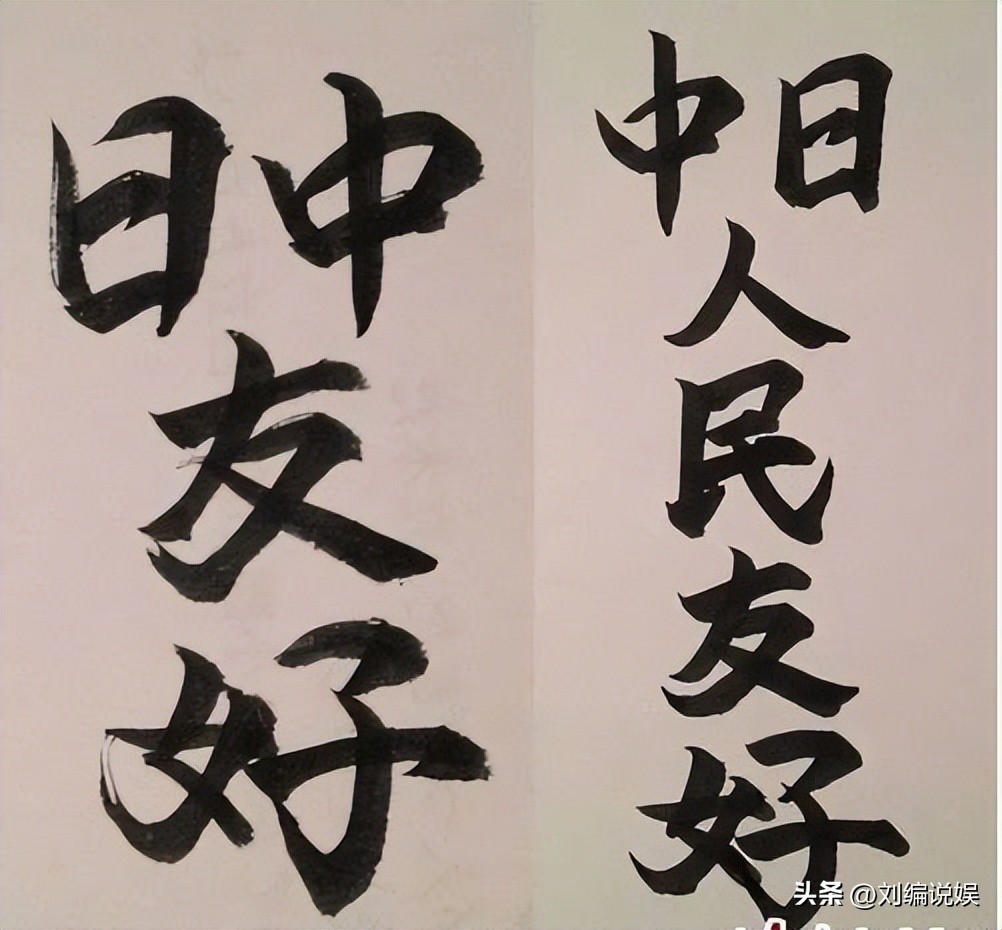 日中
友
好
中日
人
民
友
好
头条 @刘编说娱